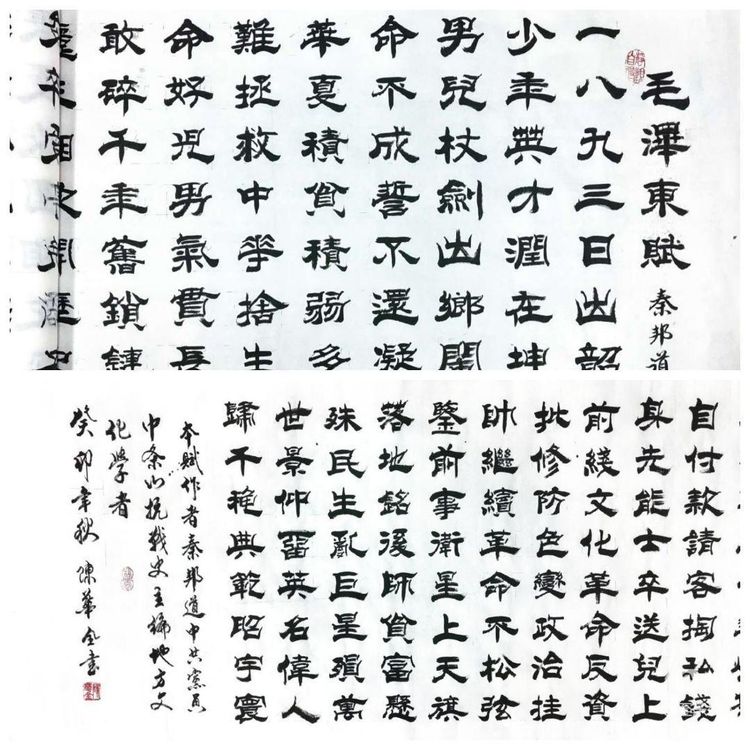 毛澤東賦 秦邦道
一八九三日出韶
少年英才潤在坤
男兒杖劍出鄉關
命不成誓不還凝
華夏積貧積弱多
難拯救中華捨生
命好兒男氣貫長
敢碎千年舊鎖鏈
自付款請客掏私錢
身先能士卒送兒上
前綫文化革命反資
批修防色變政治挂
帥繼續革命不松弦
鑒前事衛星上天旗
落地銘後師貧富懸
殊民生亂巨星殞萬
世景仰留英名偉人
歸千穐典範昭宇寰
本賦作者秦邦道中共黨員
中条山抗戰史主編地方文
化學者
癸卯年秋 陳華全书